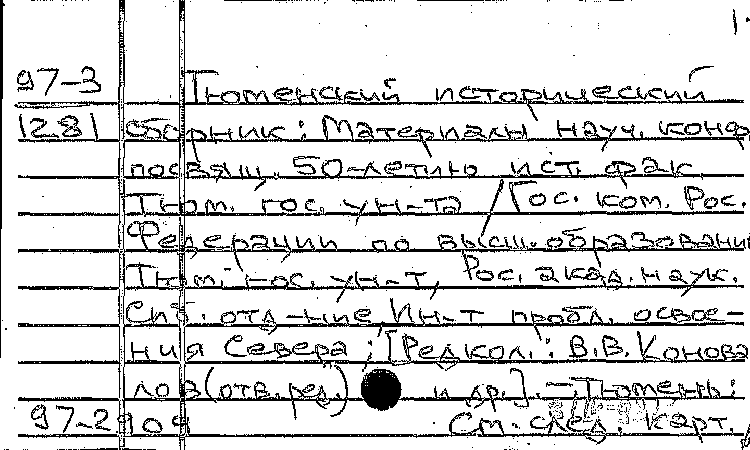 97-3 Тюменский исторический
1281 сборник: Материалы науч. конф
посвящ. 50-летию ист. фак.
Тюм. гос. ун-та / Гос. ком. Рос.
Федерации по высш. образовани
Тюм. гос. ун-т, Рос. акад. наук.
Сиб. отд-ние, Ин-т пробл. освое-
ния Севера; [Редкол.: В.В. Конова
лов (отв. ред.) и др.]. – Тюмень:
97-2909 См. след. карт.